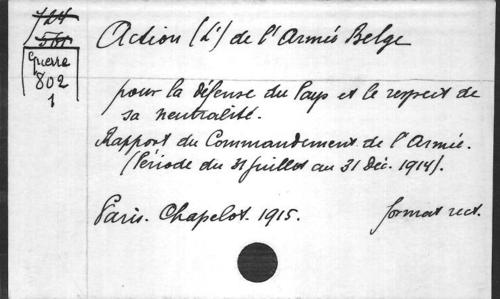 724
561
Guerre
802
1
Action (L') de l'Armée Belge
pour la défense du Pays et le respect de
sa neutralité.
Rapport du Commandement de l'Armée.
(Période du 31 juillet au 31 Déc. 1914).
Paris. Chapelot. 1915.
format rect.